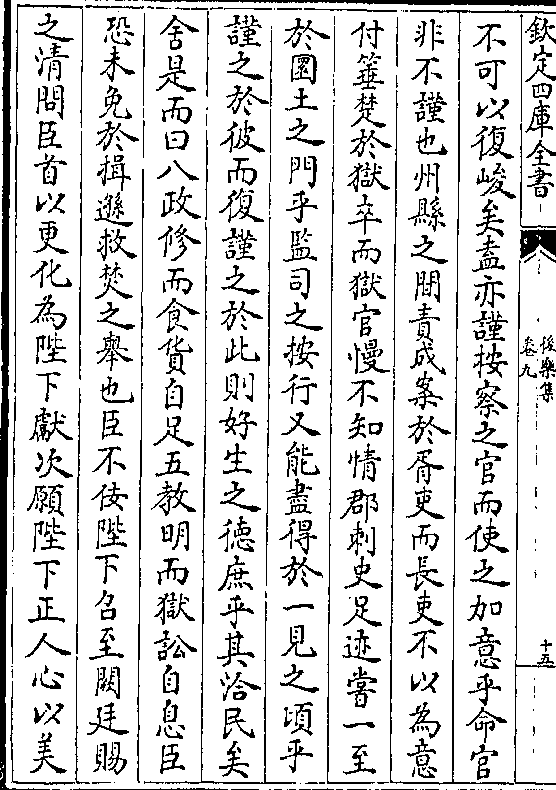 欽定四庫全書
後樂集
卷九
十五
不可以復峻矣盍亦謹按察之官而使之加意乎命官
非不謹也州縣之間責成案於胥吏而長吏不以為意
付箠楚於獄卒而獄官慢不知情郡刺史足迹嘗一至
於圜土之門乎監司之按行又能盡得於一見之頃乎
謹之於彼而復謹之於此則好生之德庶乎其洽民矣
舍是而曰八政修而食貨自足五教明而獄訟自息臣
恐未免於揖遜救焚之舉也臣不佞陛下召至闕廷賜
之清問臣首以更化為陛下獻次願陛下正人心以美